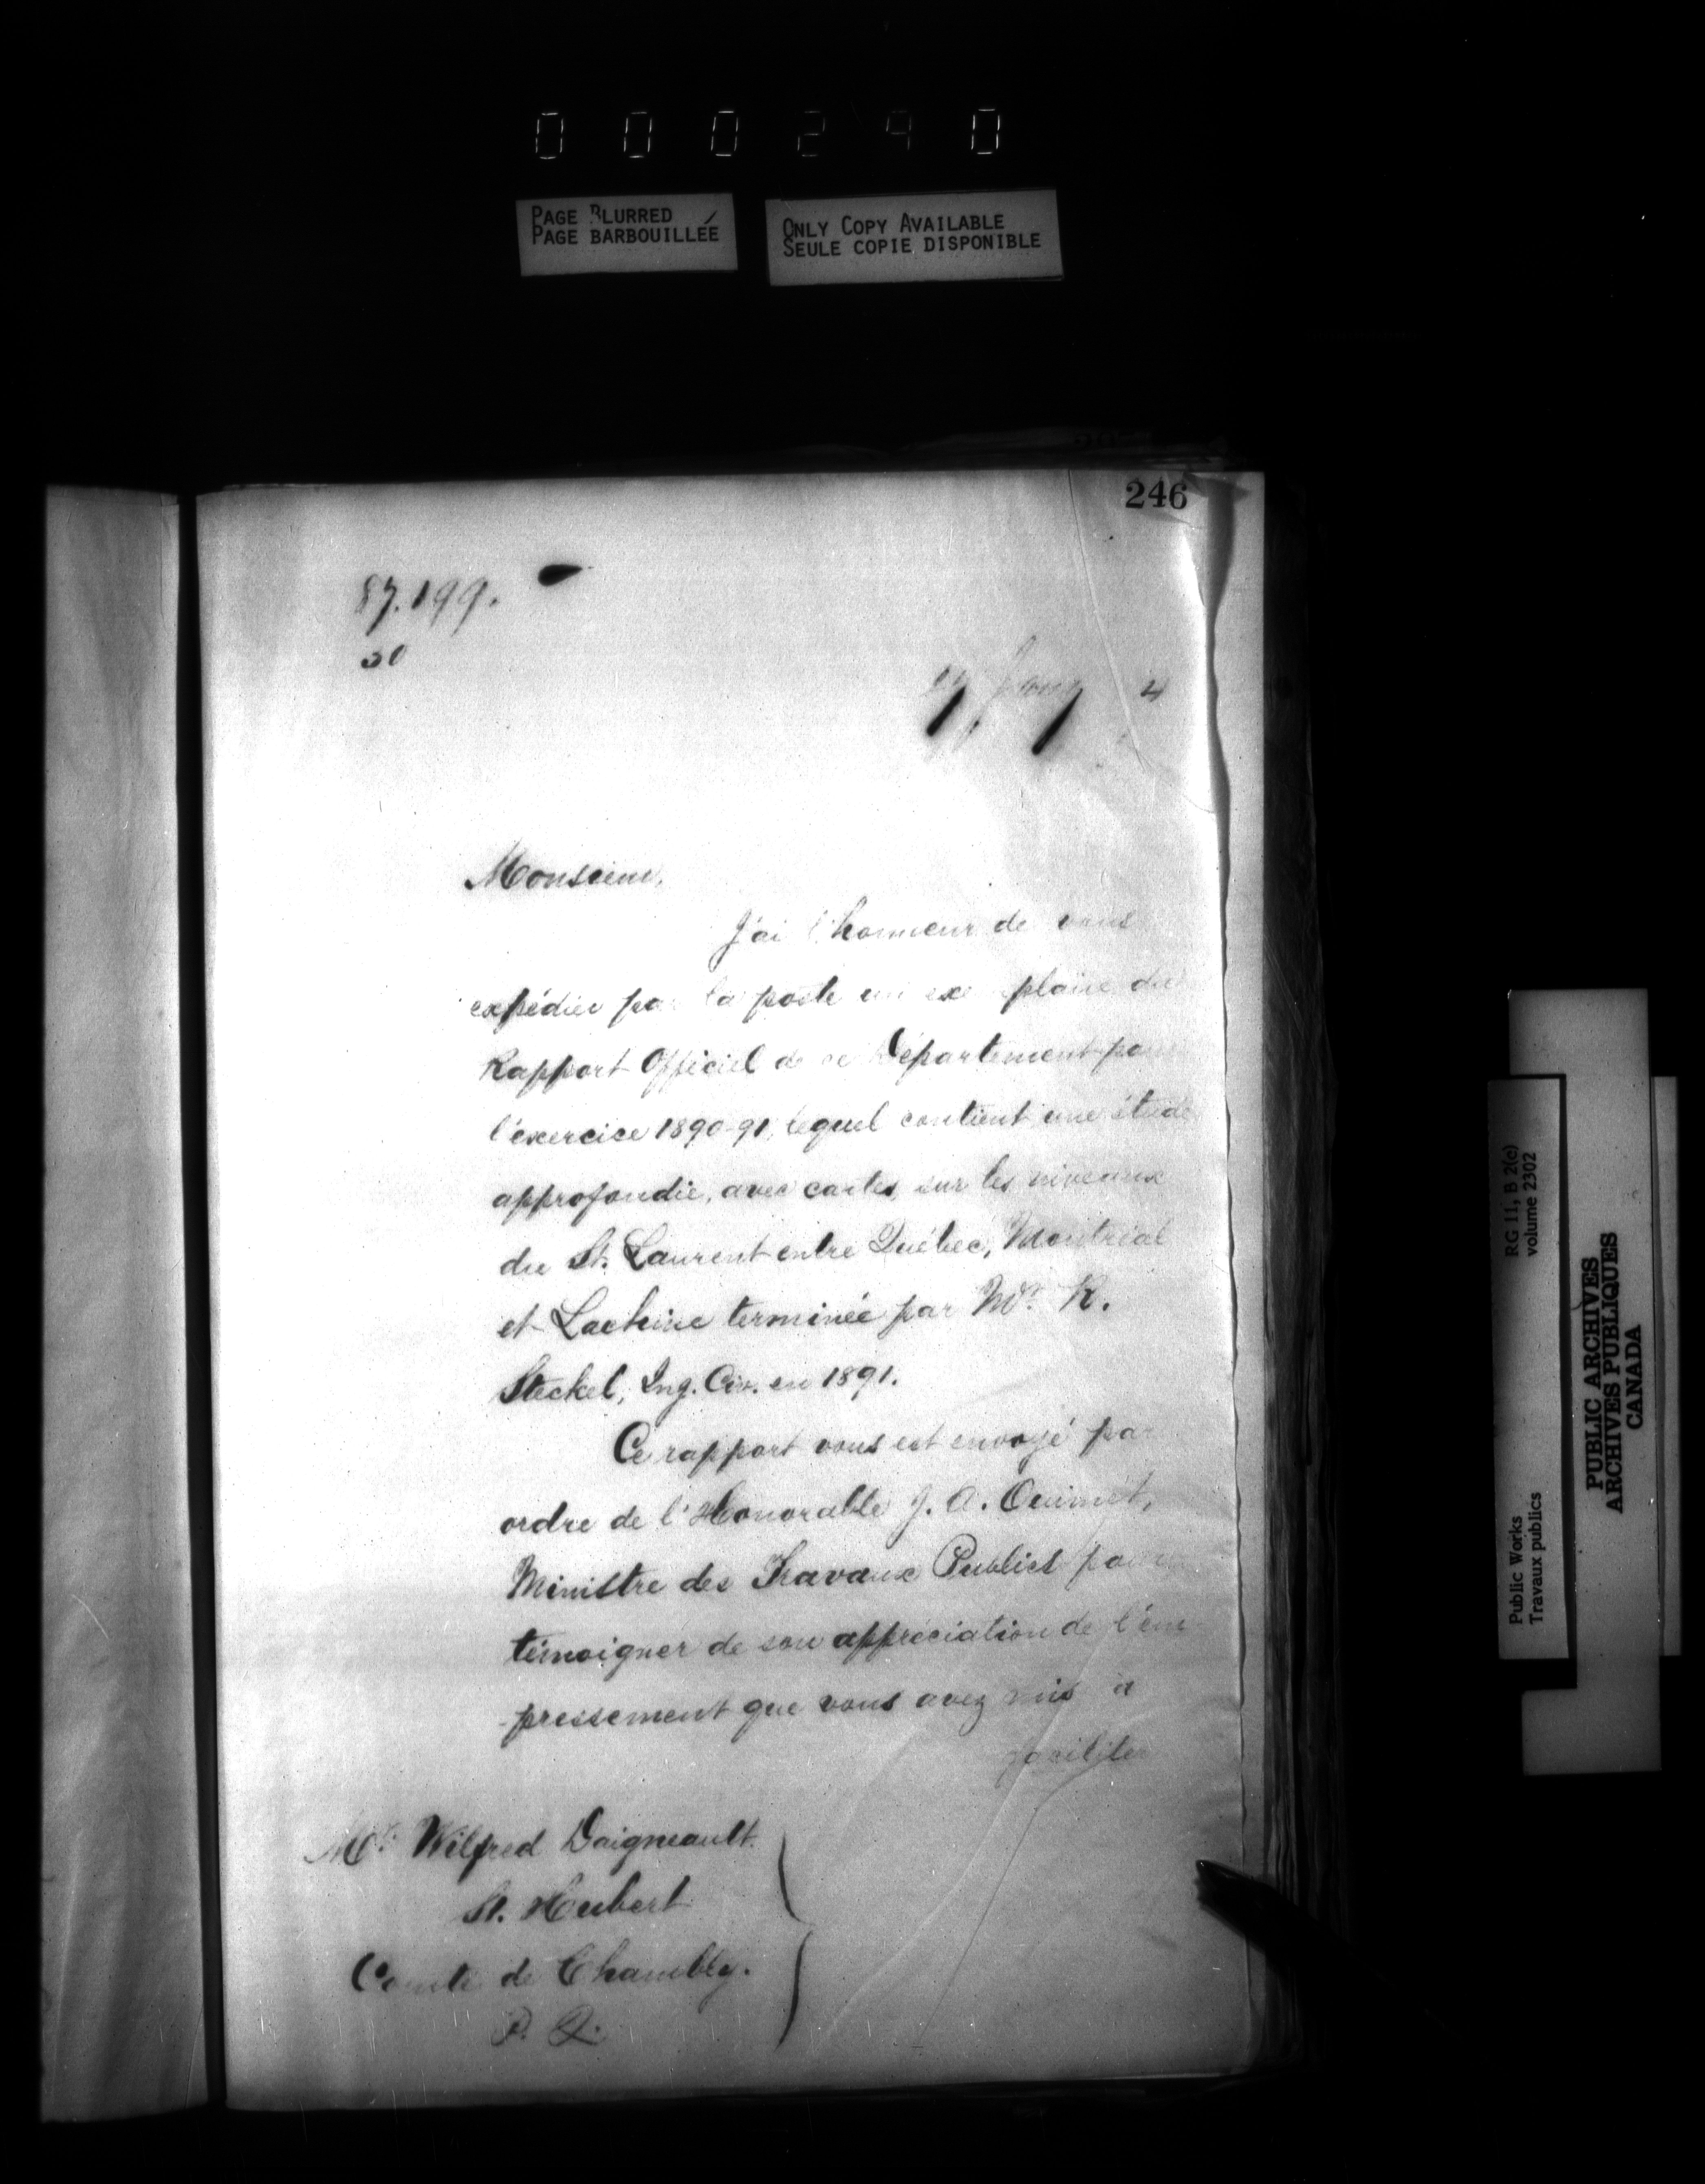 000290
PAGE BLURRED
PAGE BARBOUILLÉE
ONLY COPY AVAILABLE
SEULE COPIE DISPONIBLE
246
87.199.
30
4
Monsieur,
J'ai l'honneur de vous
expédier par la poste un exemplaire du
Rapport Officiel de ce Département pour
l'exercice 1890-91, lequel contient une étude
approfondie, avec cartes, sur les niveaux
du St. Laurent entre Québec, Montréal
et Lachine terminée par Mr. R.
Steckel, Ing. Civ. en 1891.
Ce rapport vous est envoyé par
ordre de l'Honorable J. A. Ouimet,
Ministre des Travaux Publics pour
témoigner de son appréciation de l'em-
-pressement que vous avez mis à
faciliter
Mr. Wilfred Daigneault.
St. Hubert
Comté de Chambly.
P. Q.
RG 11, B 2(e)
volume 2302
Public Works
Travaux publics
PUBLIC ARCHIVES
ARCHIVES PUBLIQUES
CANADA